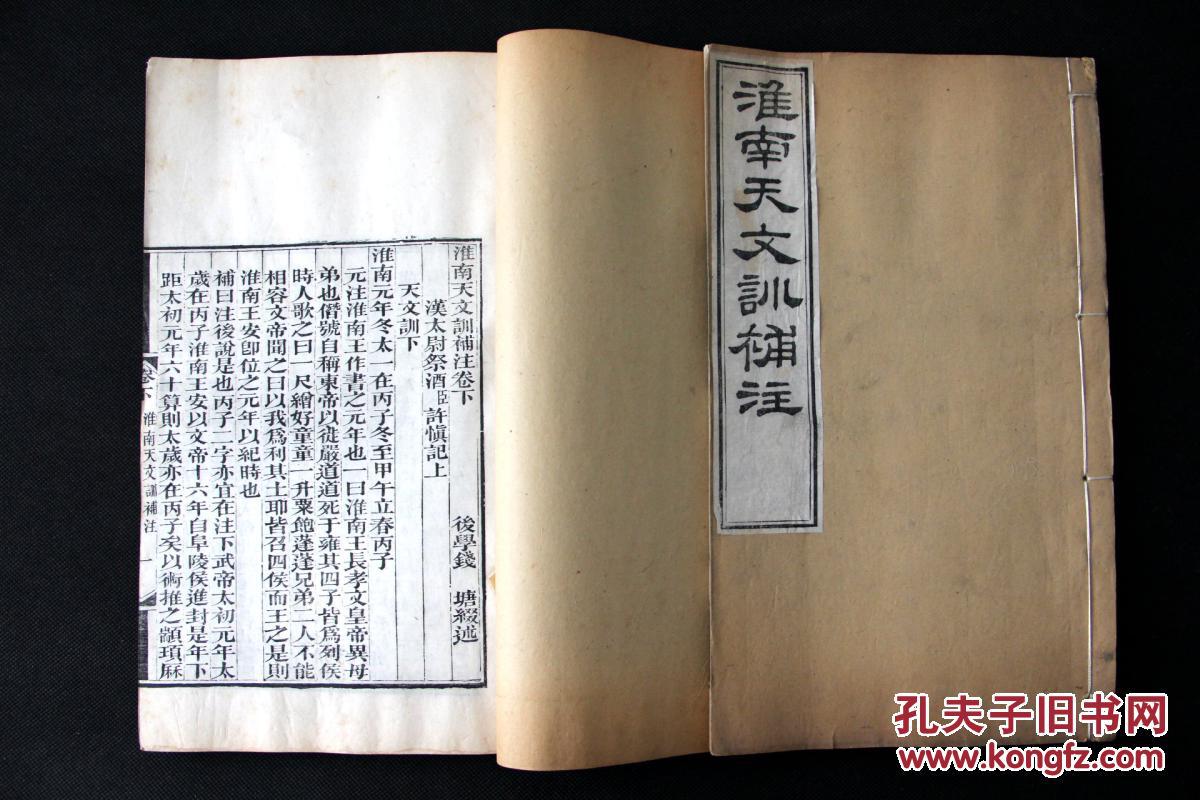 淮南天文訓補注
淮南天文訓補注卷下
漢太尉祭酒臣許愼記上
後學錢 塘綴述
天文訓下
淮南元年冬太一在丙子冬至甲午立春丙子
元注淮南王作書之元年也一曰淮南王長孝文皇帝異母
弟也僭號自稱東帝以徙嚴道道死于雍其四子皆爲列侯
時人歌之曰一尺繒好童童一升粟飽蓬蓬兄弟二人不能
相容文帝聞之曰以我爲利其土耶皆召四侯而王之是則
淮南王安卽位之元年以紀時也
補曰注後說是也丙子二字亦宜在注下武帝太初元年太
歲在丙子淮南王安以文帝十六年自阜陵侯進封是年下
距太初元年六十算則太歲亦在丙子矣以術推之顓頊厤
卷下 淮南天文訓補注 一
孔夫子旧书网
www.kongfz.com